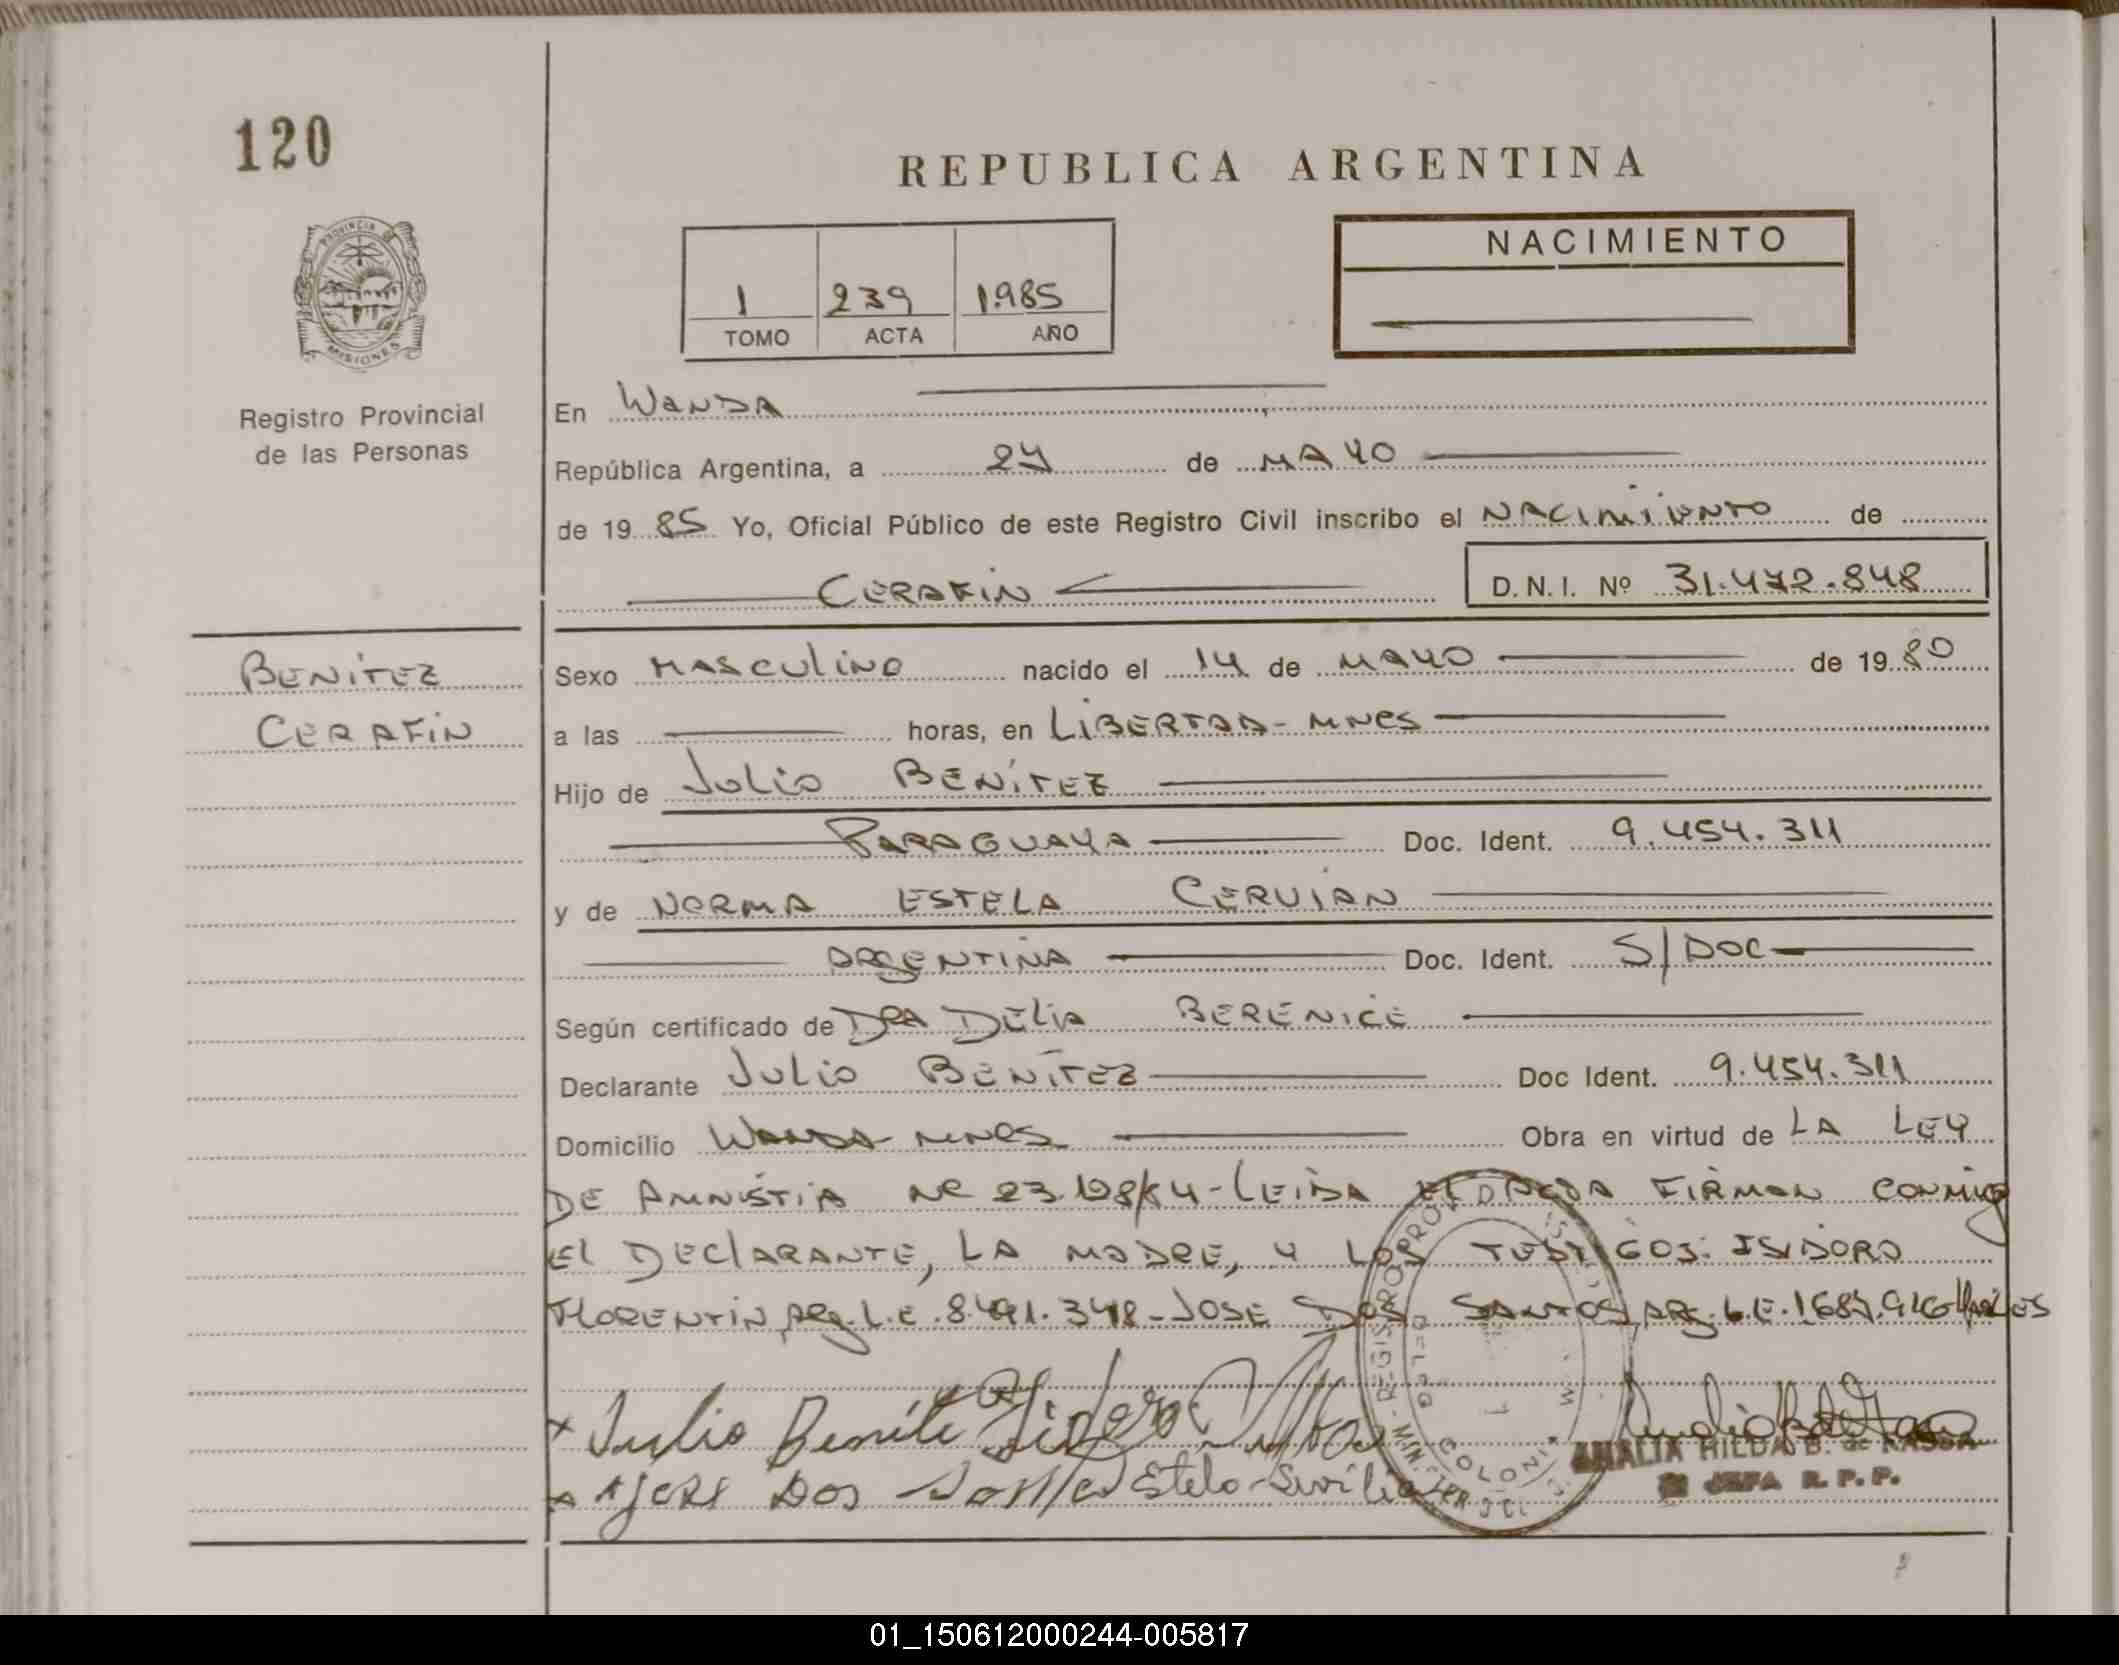 120
REPUBLICA ARGENTINA
PROVINCIA DE
MISIONES
Registro Provincial
de las Personas
NACIMIENTO
1 239 1985
TOMO ACTA AÑO
En WANDA
República Argentina, a 24 de MAYO
de 19 85 Yo, Oficial Público de este Registro Civil inscribo el NACIMIENTO de
CERAFIN D.N.I. Nº 31.472.848
BENÍTEZ
CERAFIN
Sexo MASCULINO nacido el 14 de MAYO de 19 80
a las horas, en LIBERTAD-MNES
Hijo de JULIO BENÍTEZ
PARAGUAYA Doc. Ident. 9.454.311
y de NORMA ESTELA CERVIAN
ARGENTINA Doc. Ident. S/DOC
Según certificado de DRA DELIA BERENICE
Declarante JULIO BENÍTEZ Doc Ident. 9.454.311
Domicilio WANDA-MNES Obra en virtud de LA LEY
DE AMNISTIA Nº 23.128/84-LEIDA EL ACTA FIRMAN CONMIGO
EL DECLARANTE, LA MADRE, Y LOS TESTIGOS: ISIDORO
FLORENTIN, ARG. L.E. 8.491.348-JOSE DOS SANTOS, ARG. L.E.
Julio Benite
DOS
ANALIA HILDA B. de
JEFA R.P.P.
01_150612000244-005817